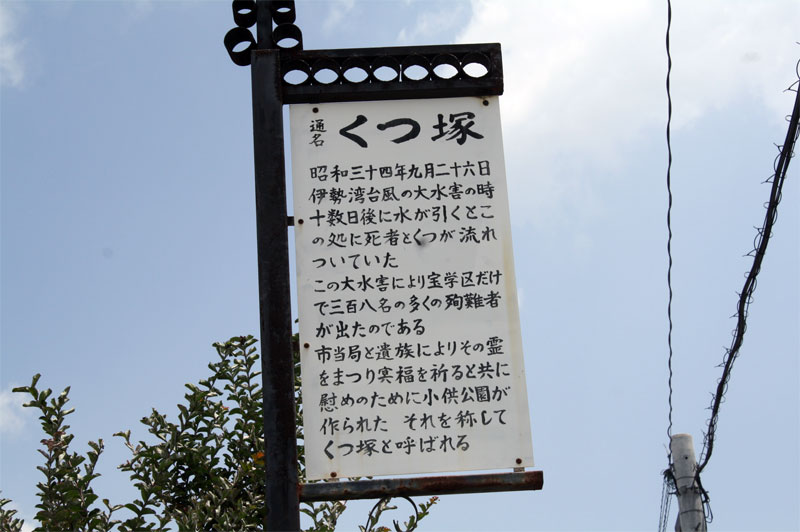 通名 くつ塚
昭和三十四年九月二十六日
伊勢湾台風の大水害の時
十数日後に水が引くとこ
の処に死者とくつが流れ
ついていた
この大水害により宝学区だけ
で三百八名の多くの殉難者
が出たのである
市当局と遺族によりその霊
をまつり冥福を祈ると共に
慰めのために小供公園が
作られた それを称して
くつ塚と呼ばれる